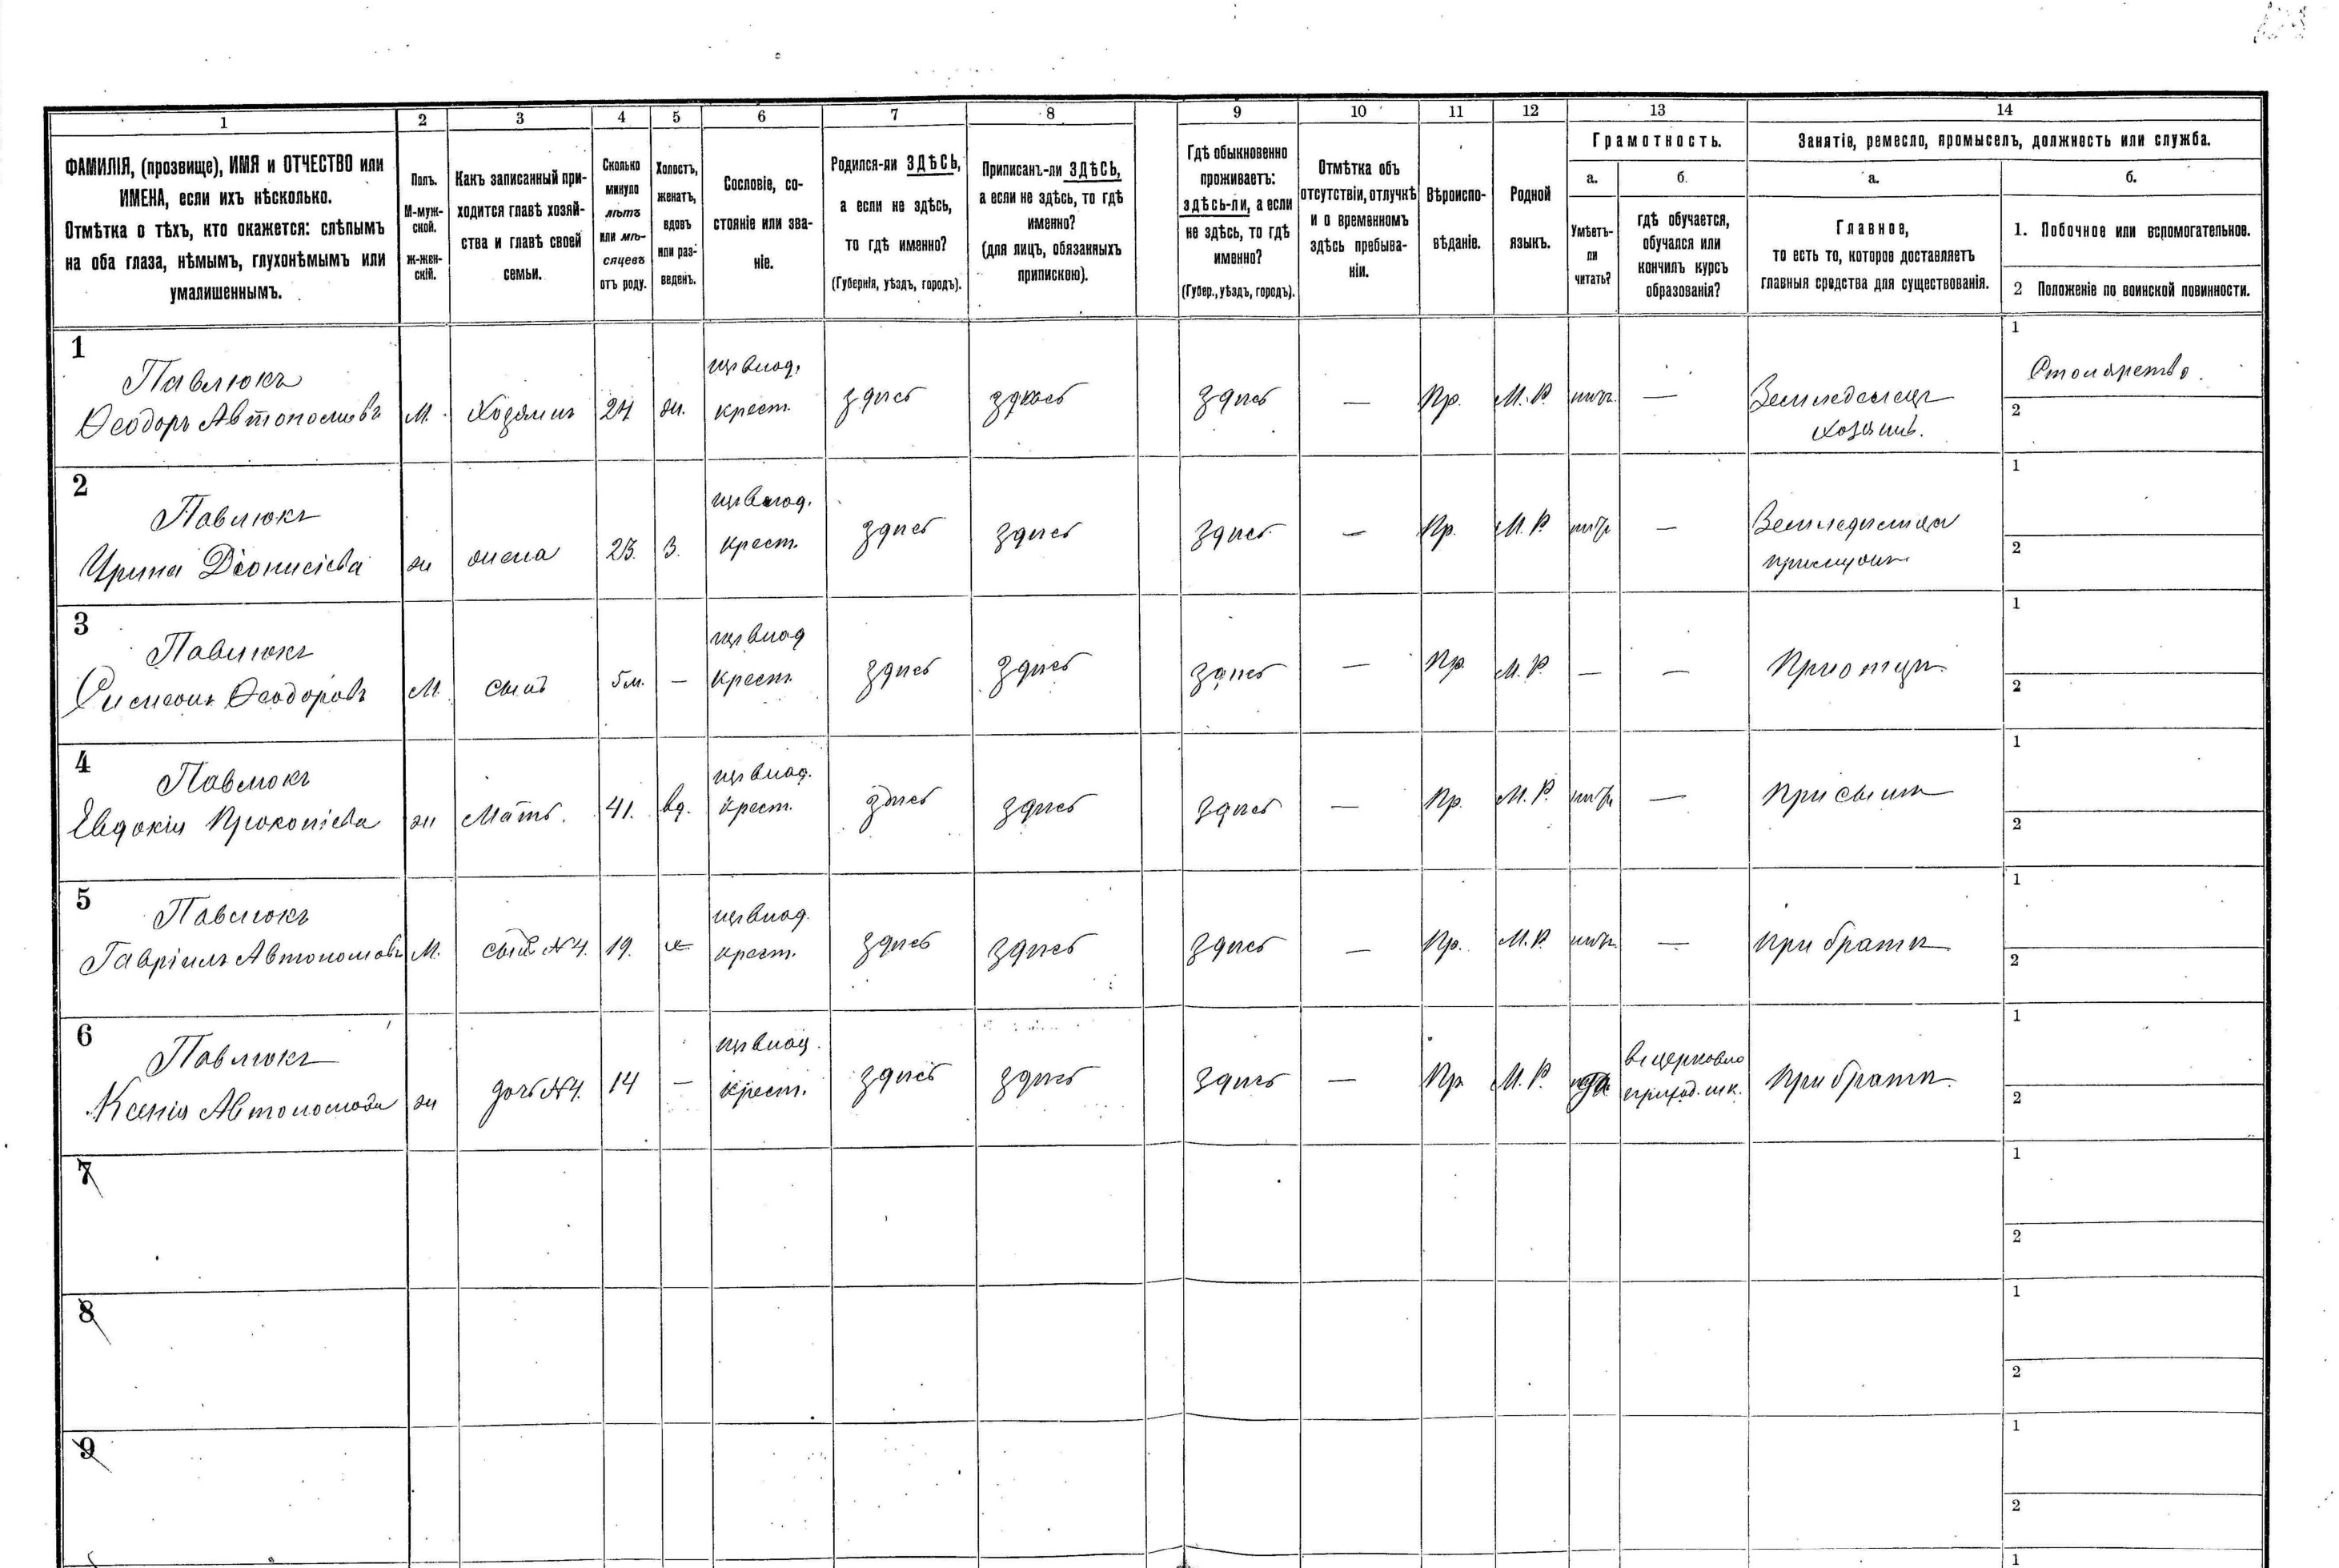 1
2
3
4
5
6
7
8
9
10
11
12
13
14
ФАМИЛІЯ, (прозвище), ИМЯ и ОТЧЕСТВО или
ИМЕНА, если ихъ нѣсколько.
Отмѣтка о тѣхъ, кто окажется: слѣпымъ
на оба глаза, нѣмымъ, глухонѣмымъ или
умалишеннымъ.
Полъ.
М-муж-
ской.
ж-жен-
скій.
Какъ записанный при-
ходится главѣ хозяй-
ства и главѣ своей
семьи.
Сколько
минуло
лѣтъ
или мѣ-
сяцевъ
отъ роду.
Холостъ,
женатъ,
вдовъ
или раз-
веденъ.
Сословіе, со-
стояніе или зва-
ніе.
Родился-ли ЗДѢСЬ,
а если не здѣсь,
то гдѣ именно?
(Губернія, уѣздъ, городъ).
Приписанъ-ли ЗДѢСЬ,
а если не здѣсь, то гдѣ
именно?
(для лицъ, обязанныхъ
припискою).
Гдѣ обыкновенно
проживаетъ:
здѣсь-ли, а если
не здѣсь, то гдѣ
именно?
(Губер., уѣздъ, городъ).
Отмѣтка объ
отсутствіи, отлучкѣ
и о временномъ
здѣсь пребыва-
ніи.
Вѣроиспо-
вѣданіе.
Родной
языкъ.
Грамотность.
а.
Умѣетъ-
ли
читать?
б.
гдѣ обучается,
обучался или
кончилъ курсъ
образованія?
Занятіе, ремесло, промыселъ, должность или служба.
а.
Главное,
то есть то, которое доставляетъ
главныя средства для существованія.
б.
1. Побочное или вспомогательное.
2 Положеніе по воинской повинности.
1
Павлюкъ
Ѳеодоръ Автономовъ
М.
Хозяинъ
24
ж.
крест.
здѣсь
здѣсь
здѣсь
—
Пр.
М. Р.
нѣтъ
—
Земледѣлецъ
хозяинъ.
1
Столярство.
2
2
Павлюкъ
Ирина Діонисіева
ж
жена
23.
З.
крест.
здѣсь
здѣсь
здѣсь
—
Пр.
М. Р.
нѣтъ
—
Земледѣлица
1
2
3
Павлюкъ
Симеонъ Ѳеодоровъ
М.
сынъ
5 м.
—
крест.
здѣсь
здѣсь
здѣсь
—
Пр
М. Р.
—
—
При отцѣ
1
2
4
Павлюкъ
Евдокія Прокопіева
ж
Мать.
41.
вд.
крест.
здѣсь
здѣсь
здѣсь
—
Пр.
М. Р.
нѣтъ
—
При сынѣ
1
2
5
Павлюкъ
Гавріилъ Автономовъ
М.
сынъ №4.
19.
х
крест.
здѣсь
здѣсь
здѣсь
—
Пр.
М. Р.
нѣтъ
—
при братѣ
1
2
6
Павлюкъ
Ксенія Автономова
ж
дочь №4.
14
—
крест.
здѣсь
здѣсь
здѣсь
—
Пр
М. Р.
да
въ церковно
приход. шк.
При братѣ.
1
2
7
1
2
8
1
2
9
1
2
1